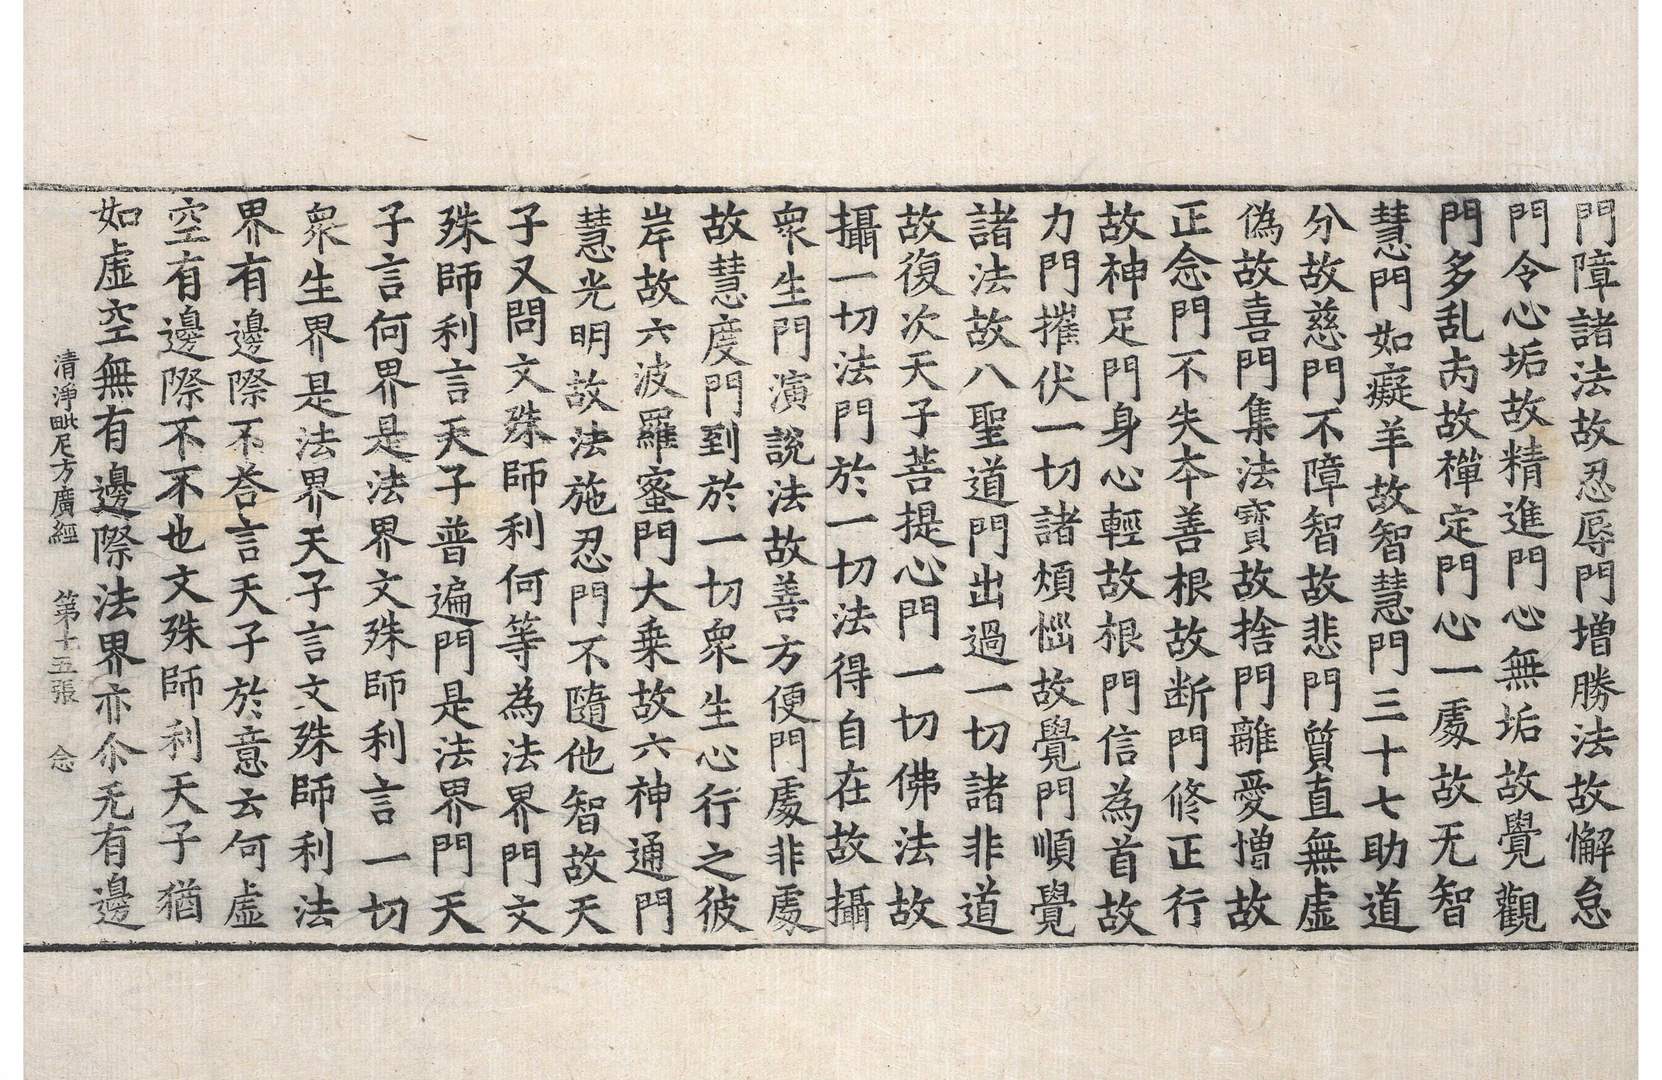 門障諸法故忍辱門增勝法故懈怠
門令心垢故精進門心無垢故覺觀
門多乱内故禪定門心一處故无智
慧門如癡羊故智慧門三十七助道
分故慈門不障智故悲門質直無虛
偽故喜門集法寶故捨門離愛憎故
正念門不失本善根故断門修正行
故神足門身心輕故根門信為首故
力門摧伏一切諸煩惱故覺門順覺
諸法故八聖道門出過一切諸非道
故復次天子菩提心門一切佛法故
攝一切法門於一切法得自在故攝
衆生門演說法故善方便門處非處
故慧度門到於一切衆生心行之彼
岸故六波羅蜜門大乗故六神通門
慧光明故法施忍門不隨他智故天
子又問文殊師利何等為法界門文
殊師利言天子普遍門是法界門天
子言何界是法界文殊師利言一切
衆生界是法界天子言文殊師利法
界有邊際不荅言天子於意云何虛
空有邊際不不也文殊師利天子猶
如虛空無有邊際法界亦尒无有邊
清淨毗尼方廣經 第十五張 念